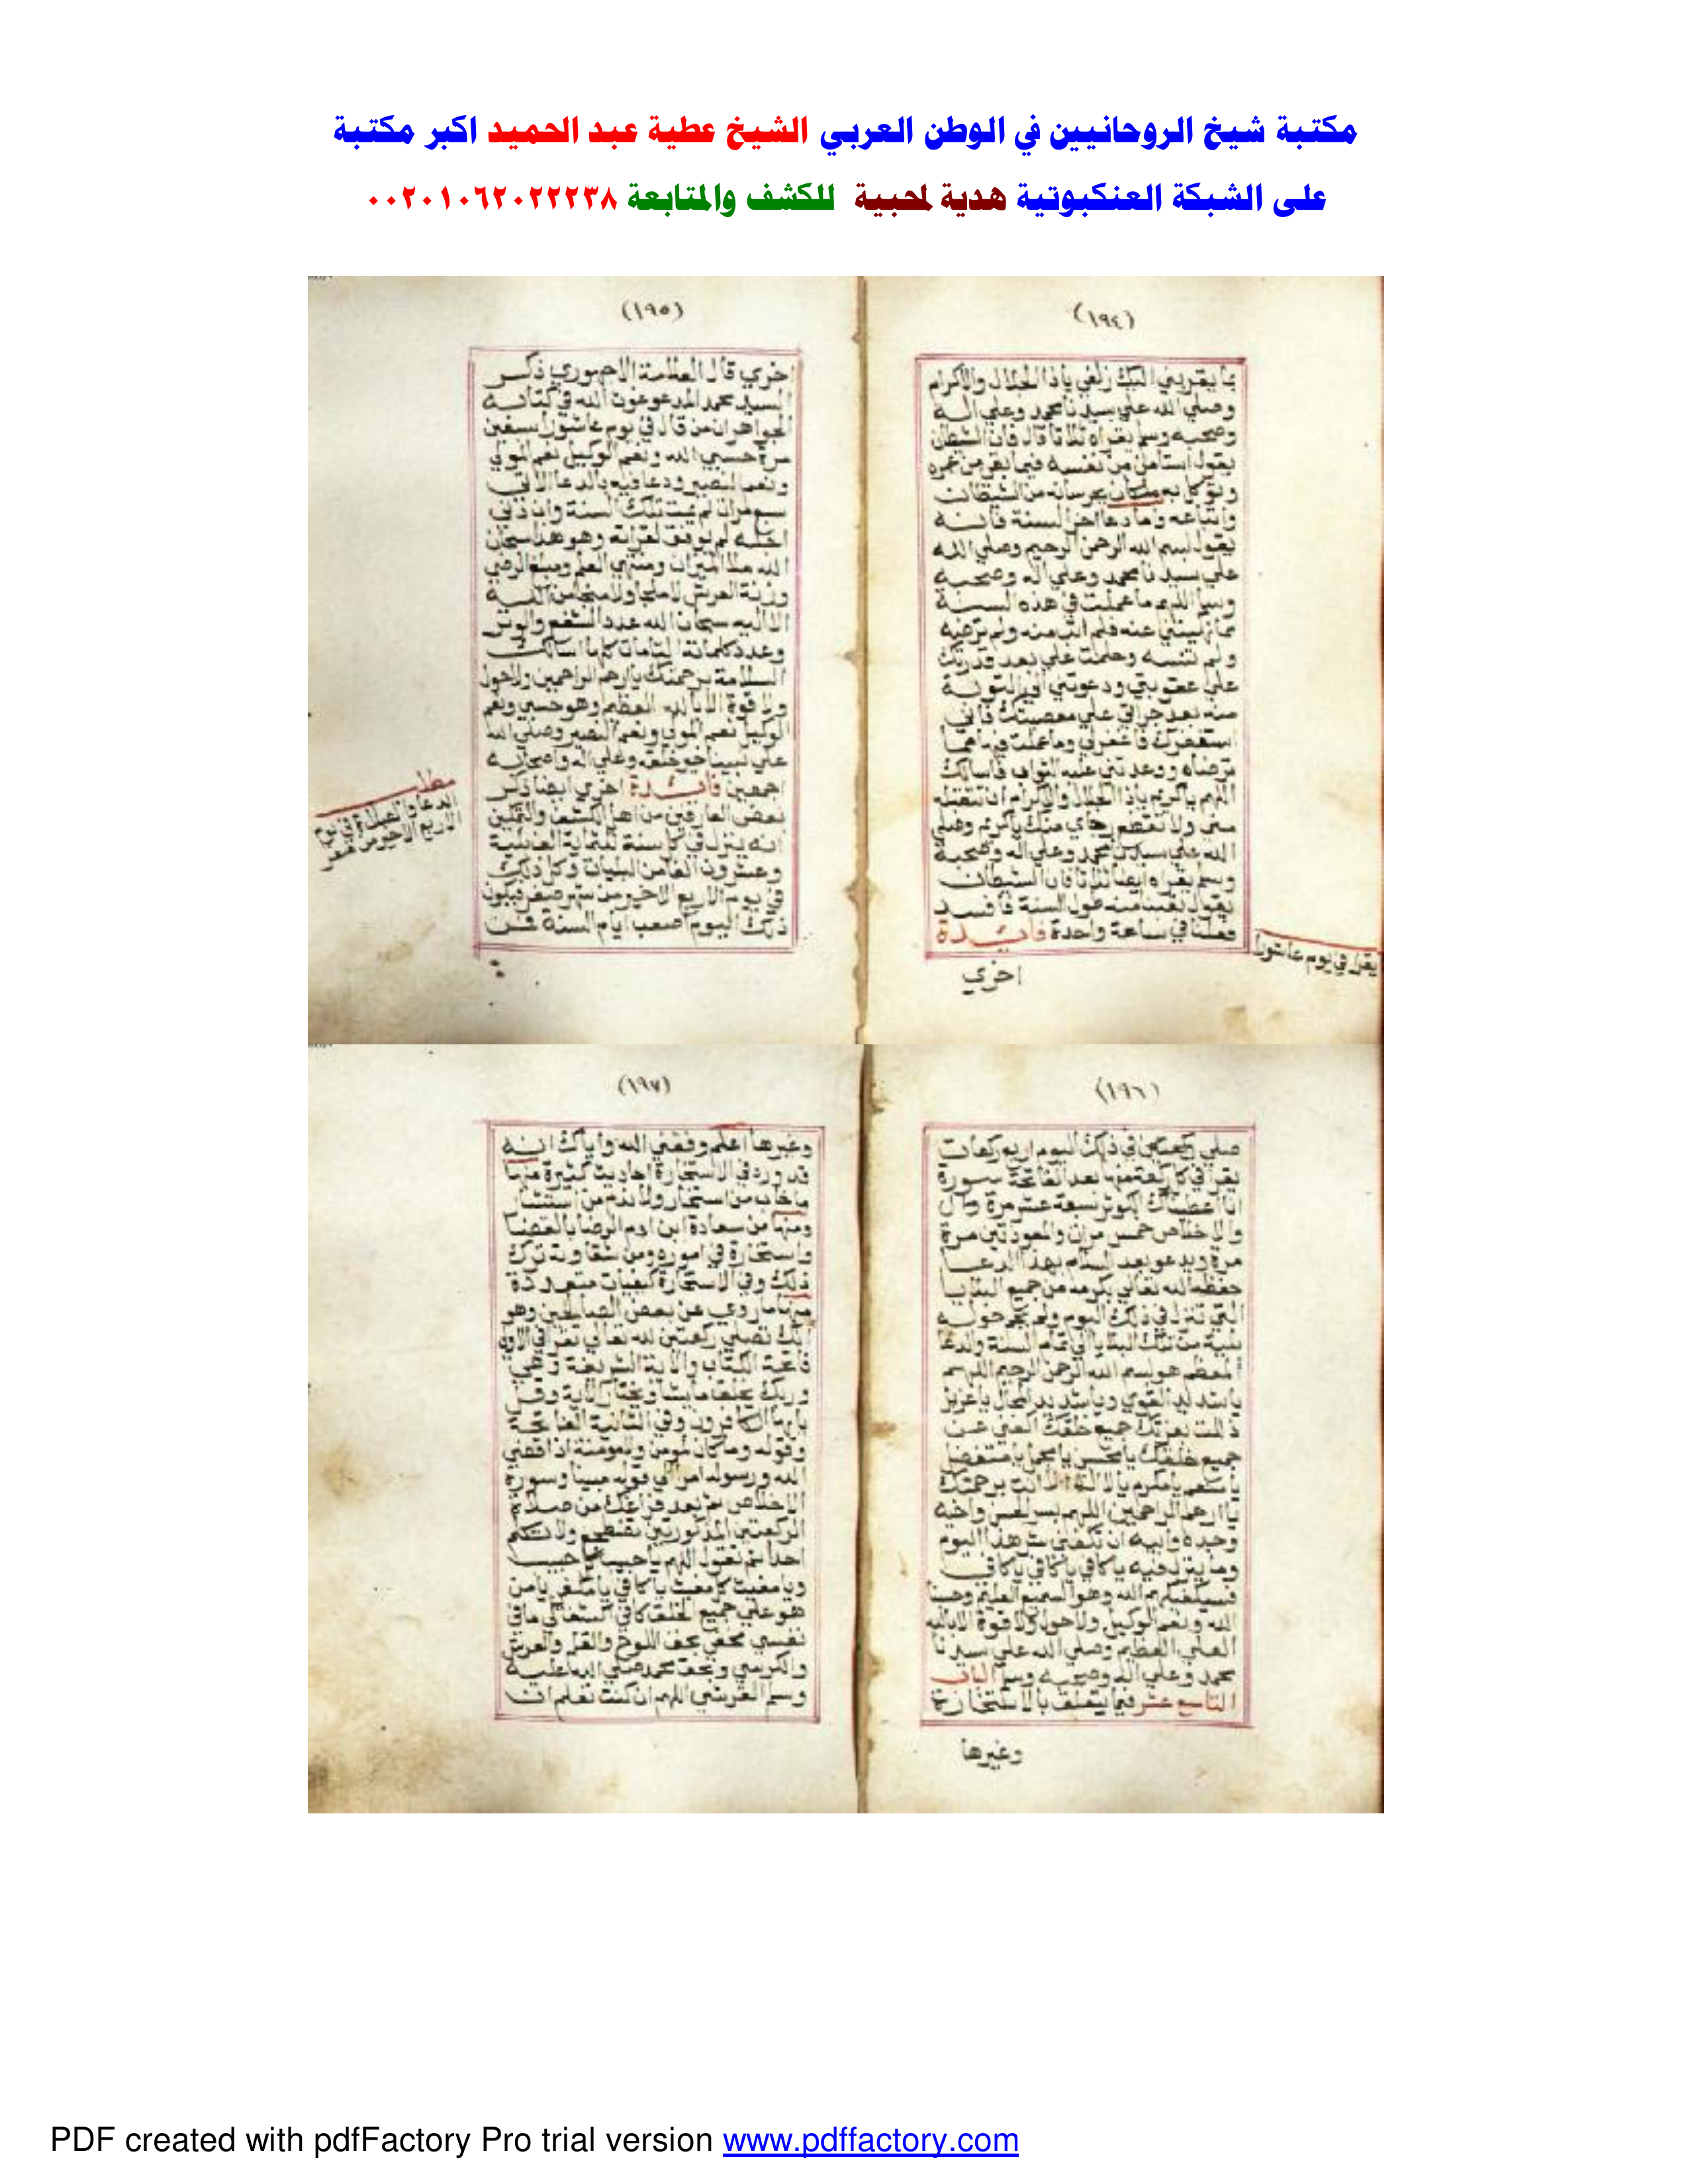 مكتبة شيخ الروحانيين في الوطن العربي الشيخ عطية عبد الحميد اكبر مكتبة
على الشبكة العنكبوتية هدية لمحبية للكشف والمتابعة ٠٠٢٠١٠٦٢٠٢٢٢٣٨
(١٩٤)
بما يقربني اليك زلفي ياذا الجلال والاكرام
وصلي الله علي سيدنا محمد وعلي اله
وصحبه وسلم يقراه ثلاثا قال فان الشيطان
يقول استامن من نفسه فيما بقي من عمره
ويوكل به ملكان يحرسانه من الشيطان
واتباعه وما دعا اخر السنة فانه
يقول بسم الله الرحمن الرحيم وصلي الله
علي سيدنا محمد وعلي اله وصحبه
وسلم اللهم ما عملت في هذه السنة
مما نهيتني عنه فلم اتب منه ولم ترضيه
ولم تنسه وحلمت علي بعد قدرتك
علي عقوبتي ودعوتني الي التوبة
منه بعد جراتي علي معصيتك فاني
استغفرك فاغفرلي وما عملت فيها مما
ترضاه ووعدتني عليه الثواب فاسالك
اللهم ياكريم ياذا الجلال والاكرام ان تتقبله
مني ولا تقطع رجاي منك ياكريم وصلي
الله علي سيدنا محمد وعلي اله وصحبه
وسلم يقراه ايضا ثلاثا فان الشيطان
يقول تعبنا منه طول السنة فافسد
فعلنا في ساعة واحدة فائدة
اخري
يقرا في يوم عاشورا
(١٩٥)
اخري قال العلامة الاجهوري ذكر
السيد محمد المدعو غوث الله في كتابه
الجواهر ان من قال في يوم عاشورا سبعين
مرة حسبي الله ونعم الوكيل نعم المولي
ونعم النصير ودعا فيه بالدعا الاتي
سبع مرات لم يمت تلك السنة وان دني
اجله لم يوفق لقراته وهو هذا سبحان
الله ملا الميزان ومنتهي العلم ومبلغ الرضي
وزنة العرش لا ملجا ولا منجا من الله
الا اليه سبحان الله عدد الشفع والوتر
وعدد كلماته التامات كلها اسالك
السلامة برحمتك ياارحم الراحمين ولاحول
ولا قوة الا بالله العظيم وهو حسبي ونعم
الوكيل نعم المولي ونعم النصير وصلي الله
علي نبينا خير خلقه وعلي اله واصحابه
اجمعين فائدة اخري ايضا ذكر
بعض العارفين من اهل الكشف والتمكين
انه ينزل في كل سنة ثلثماية الف بلية
وعشرون الفا من البليات وكل ذلك
في يوم الاربع الاخير من شهر صفر فيكون
ذلك اليوم اصعب ايام السنة فمن
مطلب
الدعا والصلاة في يوم
الاربع الاخير من صفر
(١٩٦)
صلي في ذلك اليوم اربع ركعات
يقرا في كل ركعة منها بعد الفاتحة سورة
انا اعطيناك الكوثر سبعة عشر مرة
والاخلاص خمس مرات والمعوذتين مرة
مرة ويدعو بعد السلام بهذا الدعا
حفظه الله تعالي بكرمه من جميع البلايا
التي تنزل في ذلك اليوم ولم تحم حوله
بلية من تلك البلايا الي تمام السنة والدعا
المعظم هو بسم الله الرحمن الرحيم اللهم
ياشديد القوي وياشديد المحال ياعزيز
ذلت بعزتك جميع خلقك اكفني من
جميع خلقك يامحسن يامجمل يامتفضل
يامنعم يامكرم يامن لا اله الا انت برحمتك
ياارحم الراحمين اللهم بسر الحسن واخيه
وجده وابيه ان تكفني شر هذا اليوم
وما ينزل فيه ياكافي ياكافي ياكافي
فسيكفيكهم الله وهو السميع العليم وحسبنا
الله ونعم الوكيل ولاحول ولا قوة الا بالله
العلي العظيم وصلي الله علي سيدنا
محمد وعلي اله وصحبه وسلم الباب
التاسع عشر فيما يتعلق بالاستخارة
وغيرها
(١٩٧)
وغيرها اعلم وفقني الله واياك انه
قد ورد في الاستخارة احاديث كثيرة منها
ما خاب من استخار ولا ندم من استشار
ومنها من سعادة ابن ادم الرضا بالقضا
واستخارة في اموره ومن شقاوته ترك
ذلك وفي الاستخارة كيفيات متعددة
منها ما روي عن بعض الصالحين وهو
انك تصلي ركعتين لله تعالي تقرا في الاولي
فاتحة الكتاب والاية الشريفة وهي
وربك يخلق ما يشا ويختار الاية وقل
ياايها الكافرون وفي الثانية الفاتحة
وقوله وما كان لمومن ولا مومنة اذا قضي
الله ورسوله امرا الي قوله مبينا وسورة
الاخلاص ثم بعد فراغك من صلاة
الركعتين المذكورتين تضطجع ولا تتكلم
احدا ثم تقول اللهم ياحبيب كل حبيب
ويامغيث كل مغيث ياكافي يامن
هو علي جميع الخلق كافي اسالك مافي
نفسي بحق اللوح والقلم والعرش
والكرسي وبحق محمد صلي الله عليه
وسلم القرشي اللهم ان كنت تعلم ان
PDF created with pdfFactory Pro trial version www.pdffactory.com